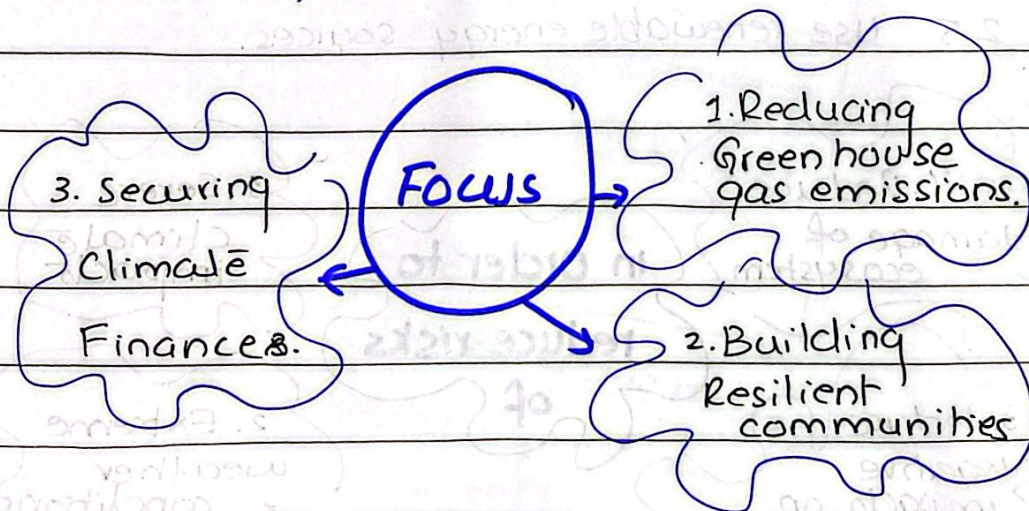 FOCUS
1. Reducing
Green house
gas emissions.
2. Building
Resilient
communities
3. Securing
Climate
Finances.